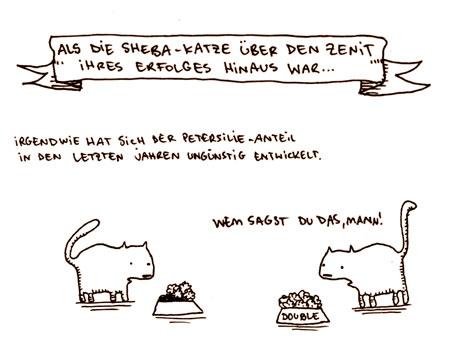 ALS DIE SHEBA-KATZE ÜBER DEN ZENIT
IHRES ERFOLGES HINAUS WAR...
IRGENDWIE HAT SICH DER PETERSILIE-ANTEIL
IN DEN LETZTEN JAHREN UNGÜNSTIG ENTWICKELT.
WEM SAGST DU DAS, MANN!
DOUBLE